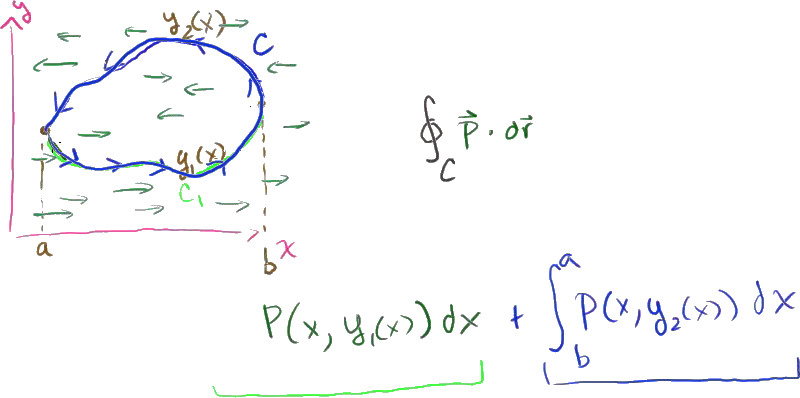 y
y₂(x)
C
y₁(x)
C₁
a
b
x
∮_C P⃗ · dr⃗
P(x, y₁(x)) dx + ∫_b^a P(x, y₂(x)) dx